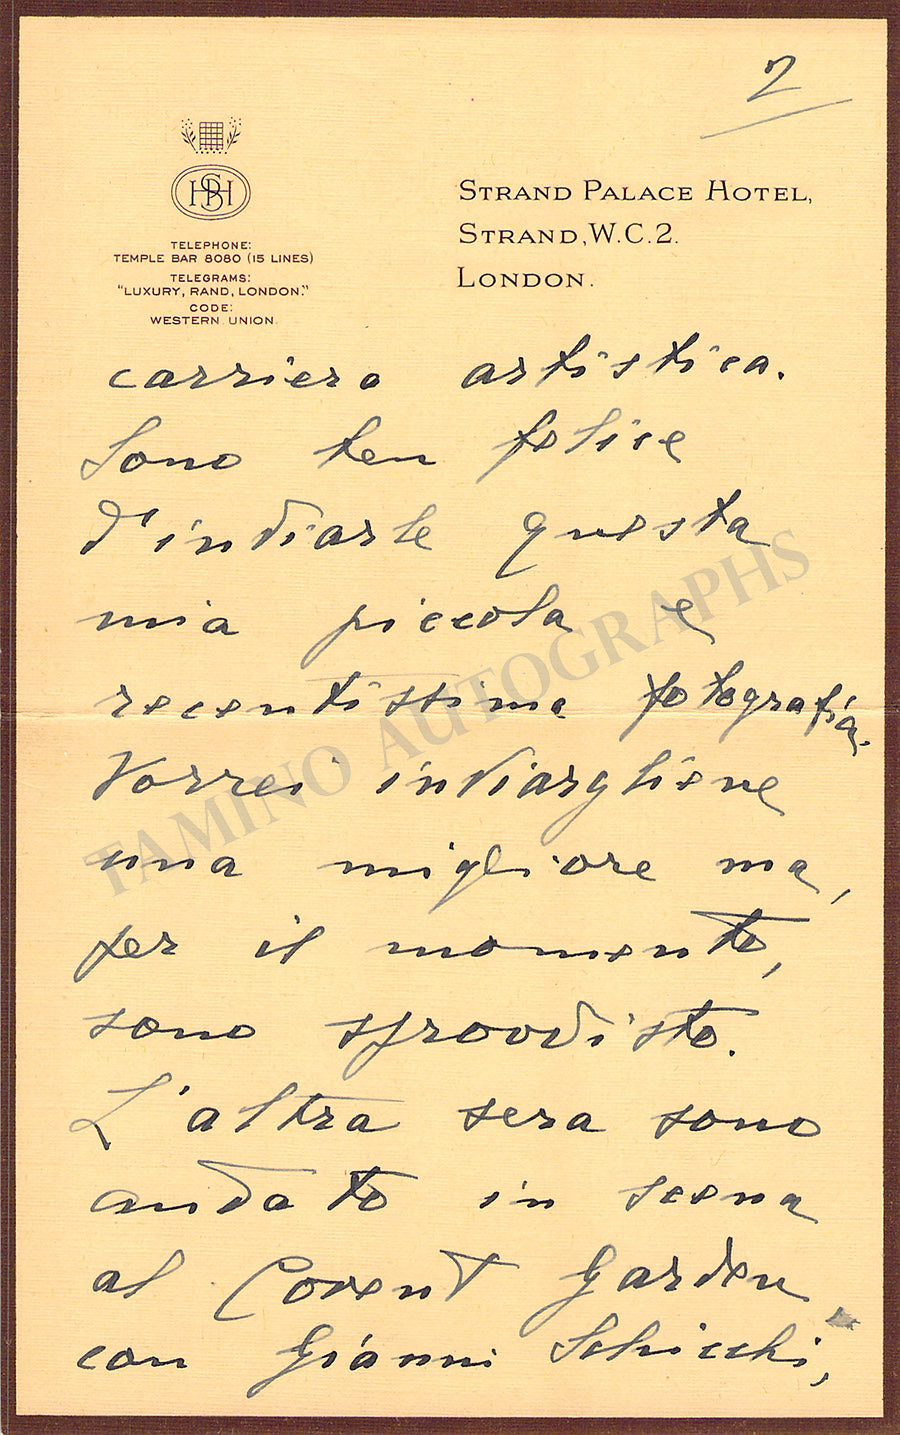 2
HSPH
TELEPHONE:
TEMPLE BAR 8080 (15 LINES)
TELEGRAMS:
"LUXURY, RAND, LONDON."
CODE:
WESTERN UNION.
STRAND PALACE HOTEL,
STRAND, W.C.2.
LONDON.
carriera artistica.
Sono ben felice
d'inviarle questa
mia piccola e
recentissima fotografia.
Vorrei inviargliene
una migliore ma,
per il momento,
sono sprovvisto.
L'altra sera sono
andato in scena
al Covent Garden
con Gianni Schicchi,
TAMINO AUTOGRAPHS